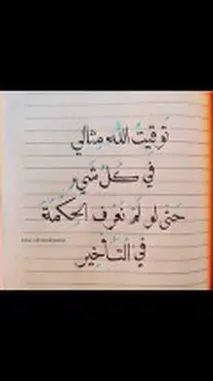 تَوقِيتُ اللّٰه مِثالي
في كُلّ شَيءٍ
حَتى لو لَمْ نَعْرف الحِكْمَةَ
في الْتَأخِير